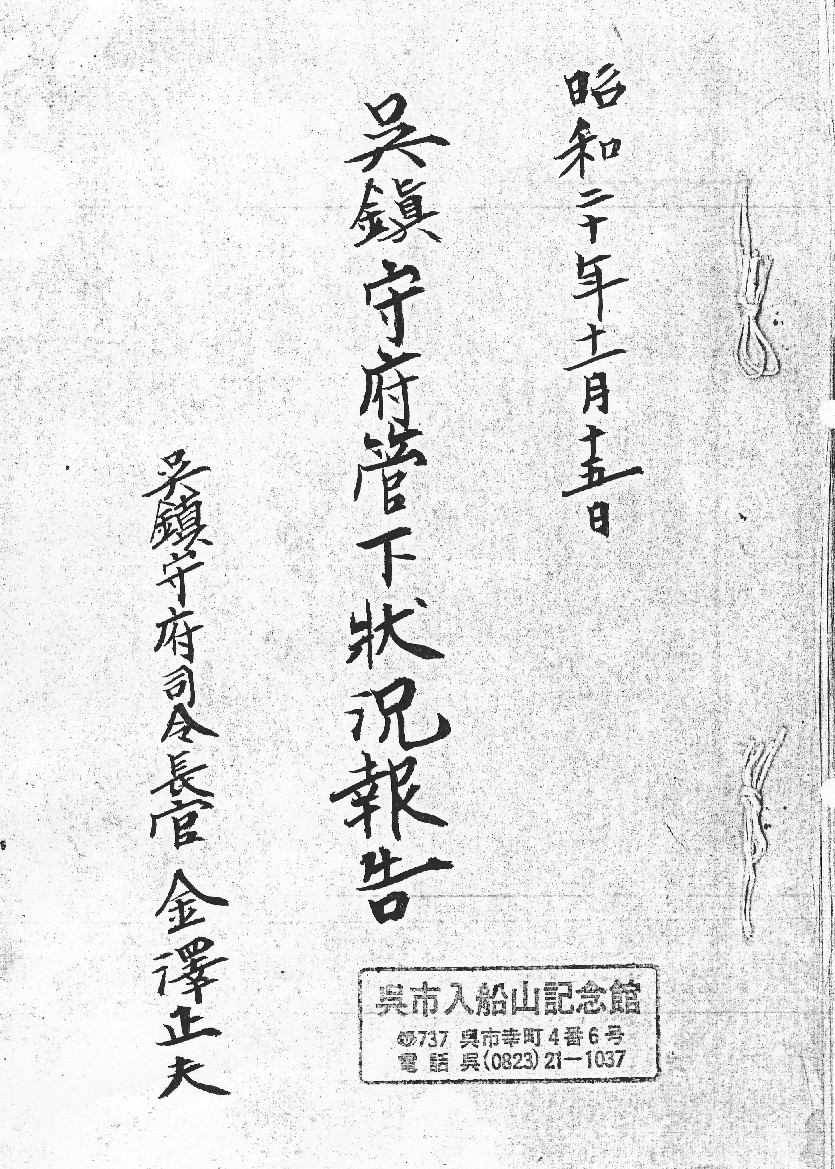 昭和二十年十一月十五日
吳鎭守府管下狀況報告
吳鎭守府司令長官 金澤正夫
呉市入船山記念館
〒737 呉市幸町4番6号
電話 呉(0823)21-1037